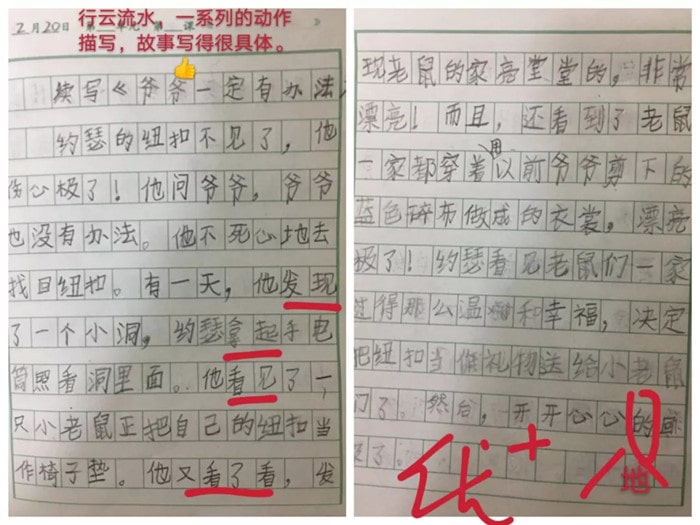 行云流水，一系列的动作
描写，故事写得很具体。
2月20日 第 单元 第 课
续写《爷爷一定有办法
约瑟的纽扣不见了，他
伤心极了！他问爷爷，爷爷
也没有办法。他不死心地去
找目纽扣。有一天，他发现
了一个小洞，约瑟拿起手电
筒照看洞里面。他看见了一
只小老鼠正把自己的纽扣当
作椅子垫。他又看了看，发
现老鼠的家亮堂堂的，非常
漂亮！而且，还看到了老鼠
一家都穿着用以前爷爷剪下的
蓝色碎布做成的衣裳。漂亮
极了！约瑟看见老鼠们一家
过得那么温暖和幸福，决定
把纽扣当做礼物送给小老鼠
们了。然后，开开心心的回
家了。
地
优+